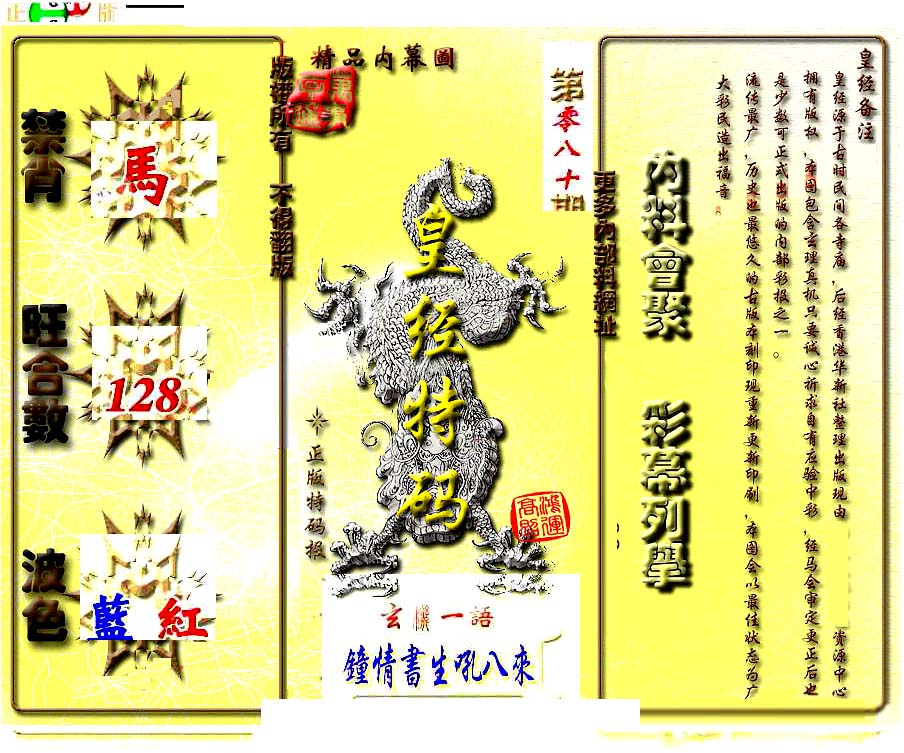 正 版
精品内幕圖
版權所有 不得翻版
第零八十期
禁肖
馬
旺合數
128
波色
藍 紅
皇经特码
正版特码报
鴻運高照
玄機一語
鐘情書生吼八來
更多內部料網址
內料會聚 彩幕列舉
皇经备注
皇经源于古时民间各寺庙,后经香港华新社整理出版现由 资源中心
拥有版权,本图包含玄理真机只要诚心祈求自有应验中彩,经马会审定更正后也
是少数可正式出版的内部彩报之一。
流传最广,历史也最悠久的古版本刻印现重新更新印刷,本图会以最佳状态为广
大彩民造出福音